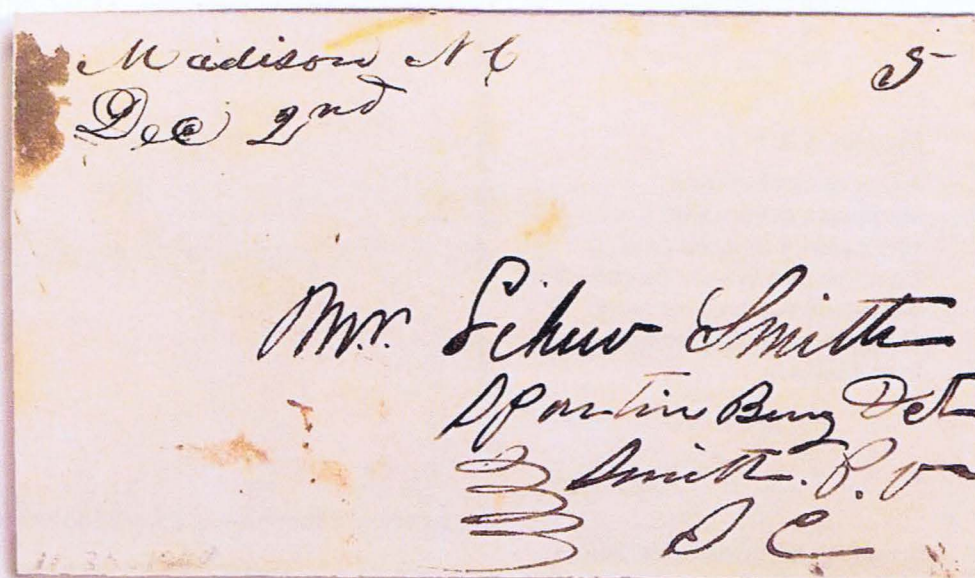 Madison N C 5
Dec 2nd
Mr. Smith
Spartin Burg Dct
Smith. P. o
S C